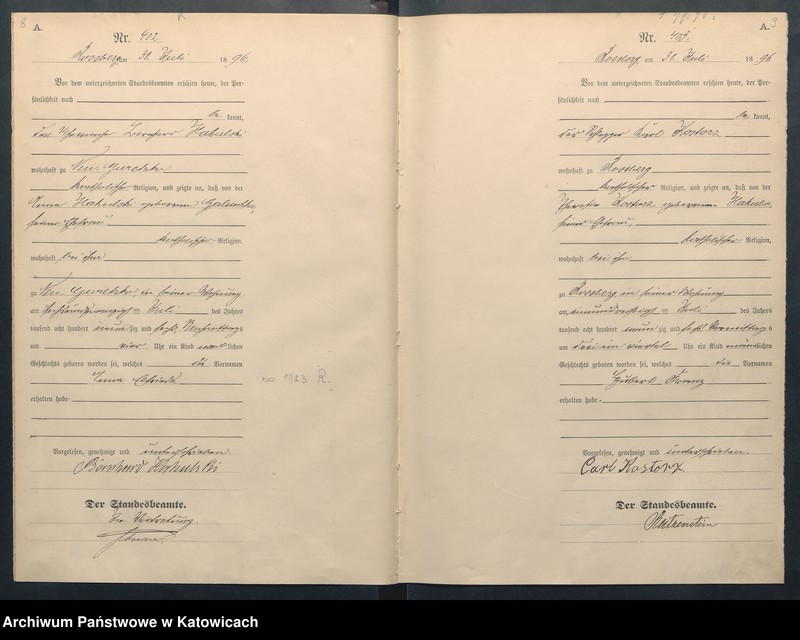 8
A.
Nr. 402
Rossberg am 31. Juli 1896.
Vor dem unterzeichneten Standesbeamten erschien heute, der Per-
sönlichkeit nach
be kannt,
Bernhard Hakulski
wohnhaft zu Neu-Guretzko
katholischer Religion, und zeigte an, daß von der
Anna Hakulski geborenen
seiner Ehefrau
katholischer Religion,
wohnhaft bei ihm
zu Neu-Guretzko, in seiner Wohnung
am sechsundzwanzigsten Juli des Jahres
tausend acht hundert neunzig und sechs Nachmittags
um vier Uhr ein Kind weiblichen
Geschlechts geboren worden sei, welches die Vornamen
Elfriede
erhalten habe.
Vorgelesen, genehmigt und unterschrieben.
Bernhard Hakulski
Der Standesbeamte.
In Vertretung.
∞ 11/23 R.
A. 9
Nr. 403.
Rossberg am 31. Juli 1896
Vor dem unterzeichneten Standesbeamten erschien heute, der Per-
sönlichkeit nach
be kannt,
der Schlepper Karl Kostorz
wohnhaft zu Rossberg
katholischer Religion, und zeigte an, daß von der
Kostorz geborenen
seiner Ehefrau,
katholischer Religion,
wohnhaft bei ihm
zu Rossberg in seiner Wohnung
am einunddreißigsten Juli des Jahres
tausend acht hundert neunzig und sechs Vormittags
um drei ein viertel Uhr ein Kind männlichen
Geschlechts geboren worden sei, welches die Vornamen
Hubert Franz
erhalten habe.
Vorgelesen, genehmigt und unterschrieben.
Carl Kostorz
Der Standesbeamte.
Archiwum Państwowe w Katowicach